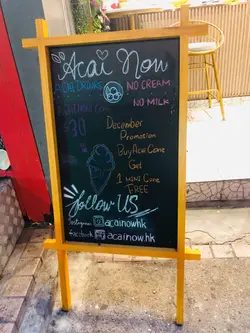 Acai Now
NO CREAM
NO MILK
$30
December
Promotion
Buy Acai Cone
Get
1 MINI Cone
FREE
follow US
Instagram acainowhk
facebook acainow.hk